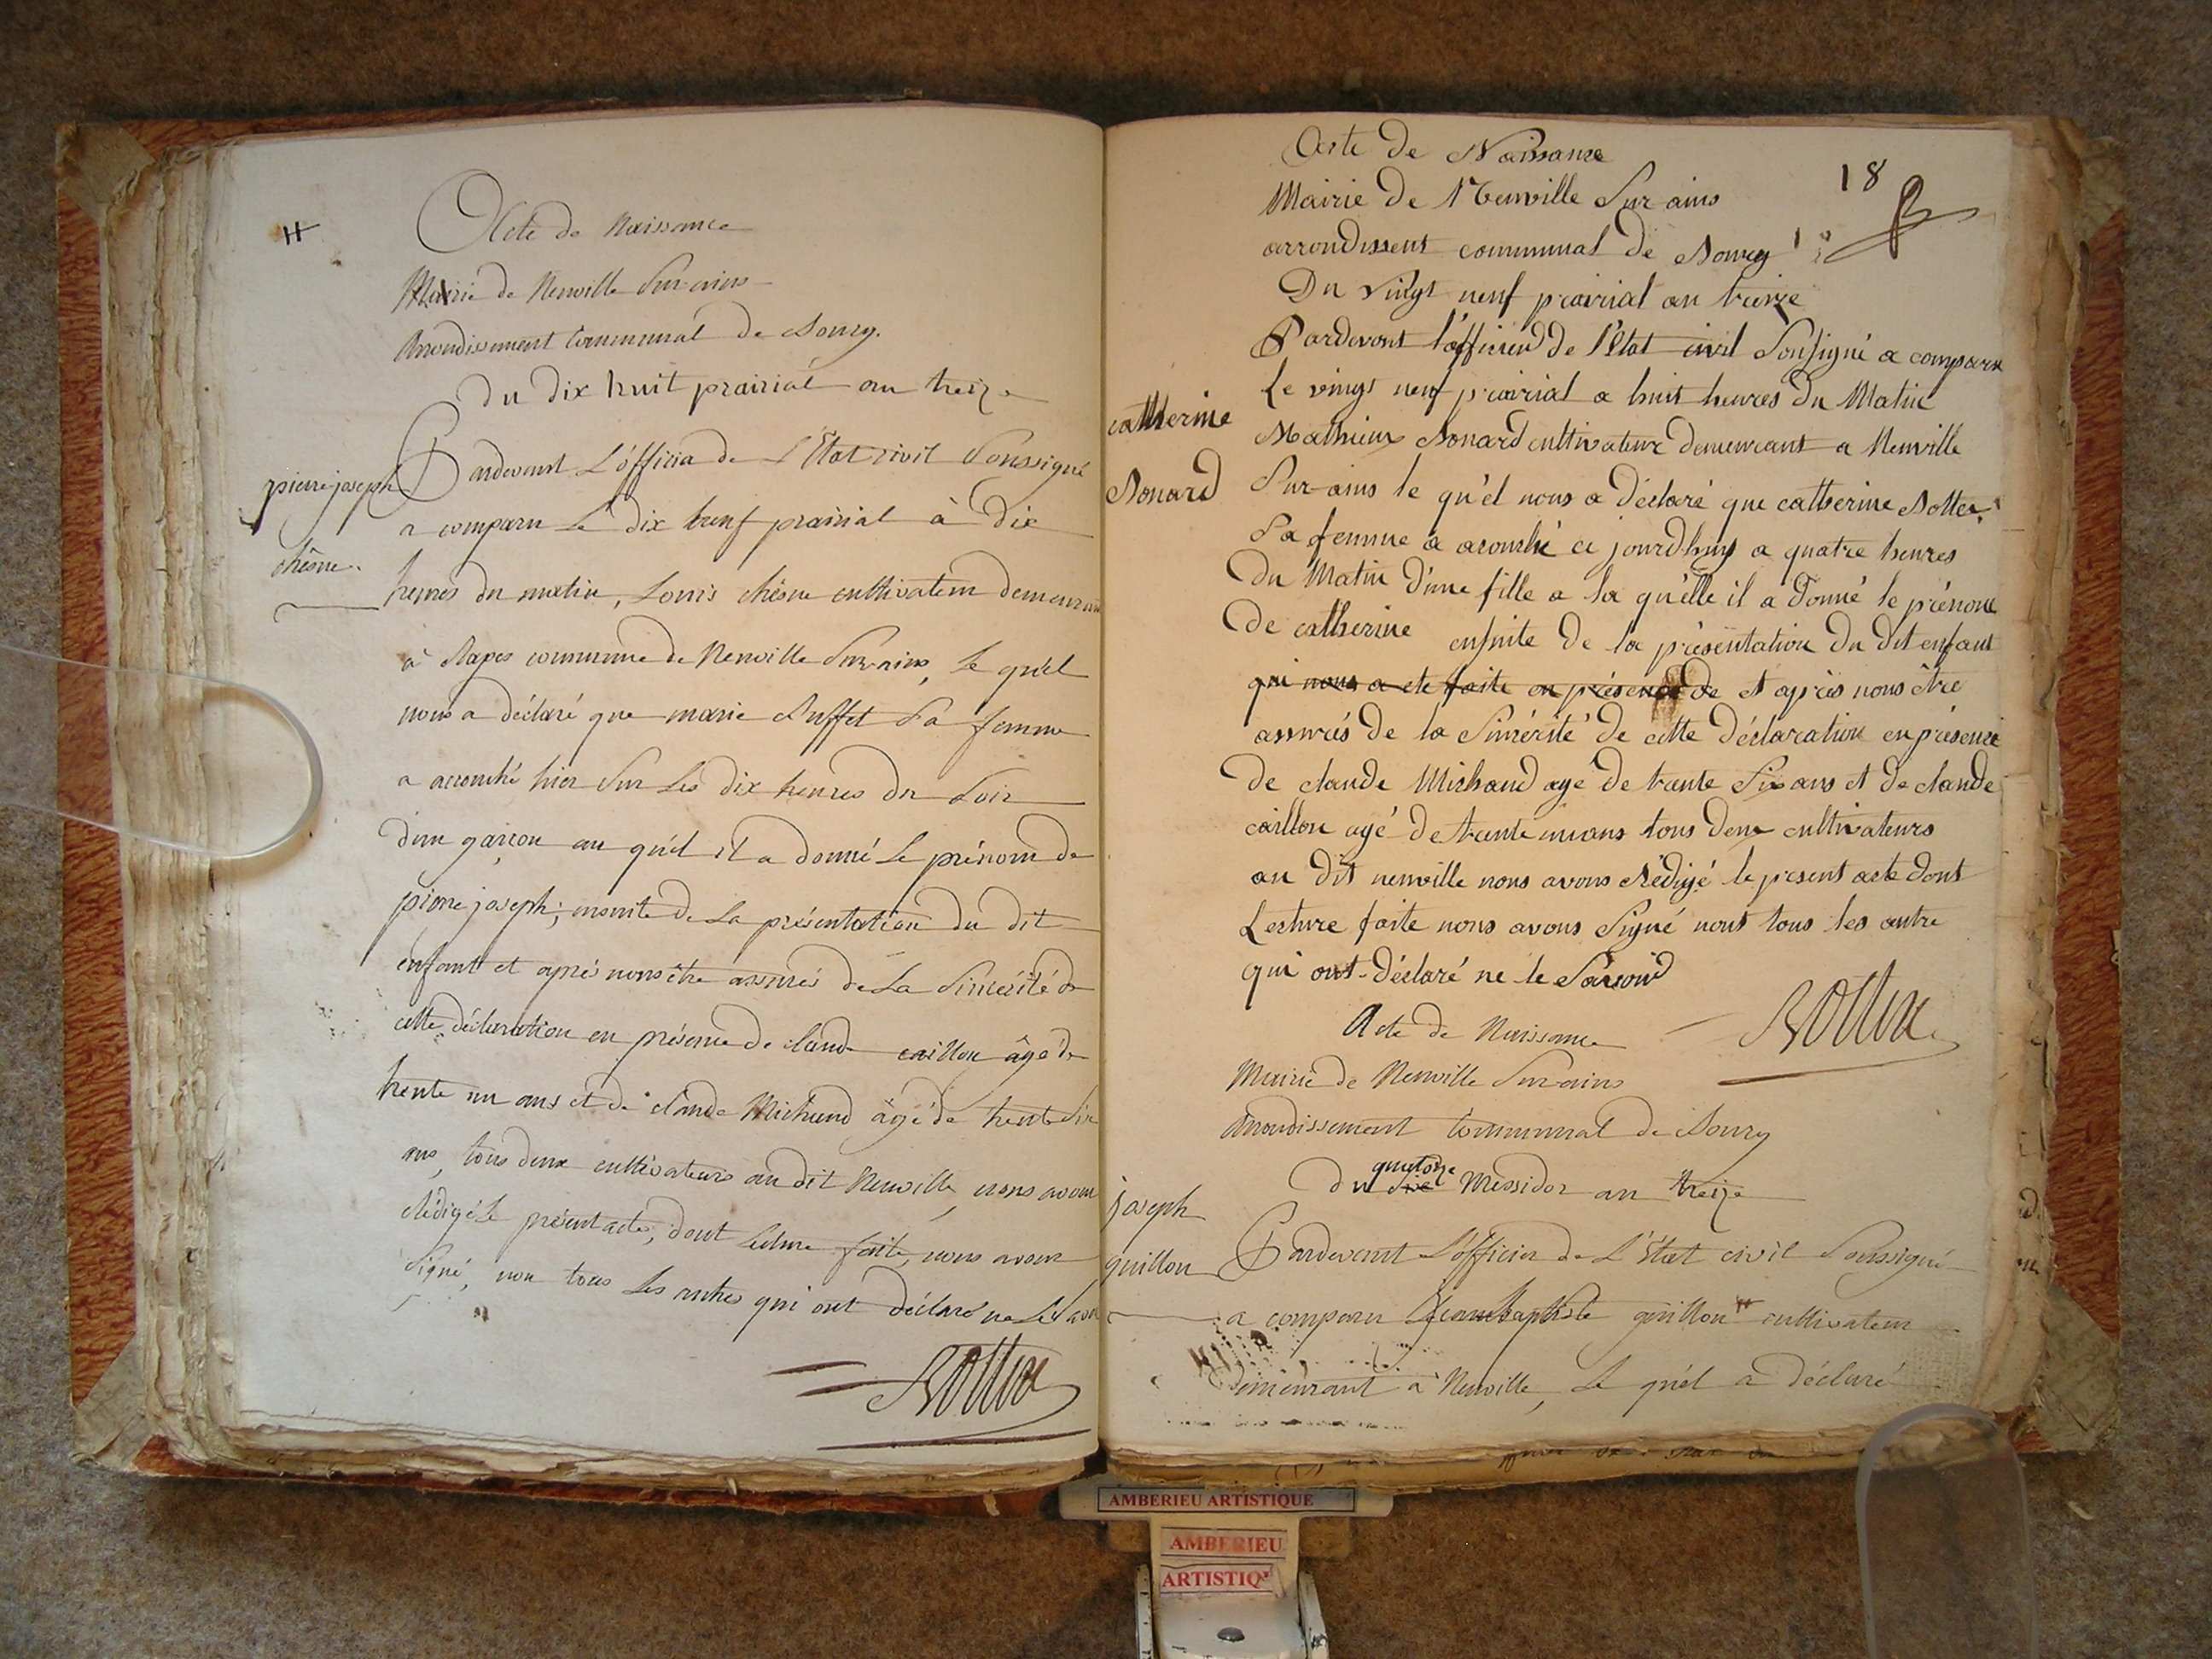 Acte de Naissance
Mairie de Neuville Sur-ains
Arrondissement Communal de Bourg.
du dix huit prairial an treize
pierre joseph
chêne.
Pardevant L'officier de L'État civil Soussigné
a comparu le dix neuf prairial à dix
heures du matin, Louis chêne cultivateur demeurant
à Rapes commune de Neuville Sur-ains, le quel
nous a déclaré que marie Buffet Sa femme
a accouché hier Sur Les dix heures du Soir
d'un garçon au quel il a donné le prénom de
pierre joseph; ensuite de La présentation du dit
enfant et après nous être assurés de La Sincérité de
cette déclaration en présence de claude caillon âgé de
trente un ans et de claude Michaud âgé de trente Six
ans, tous deux cultivateurs au dit Neuville, nous avons
Rédigé le présent acte, dont Lecture faite, nous avons
Signé, non tous Les autres qui ont déclaré ne Le
18
Acte de Naissance
Mairie de Neuville Sur-ains
arrondissent communal de Bourg
Du vingt neuf prairial an treize
catherine
Bonard
Pardevant l'officier de l'État civil Sousigné a comparu
Le vingt neuf prairial a huit heures du Matin
Mathieu Bonard cultivateur demeurant a Neuville
Sur-ains le qu'el nous a déclaré que catherine
Sa femme a acouché ce jourdhuy a quatre heures
Du Matin d'une fille a la qu'elle il a donné le prénom
de catherine ensuite de la présentation du dit enfant
qui nous a ete faite en présence de et après nous être
assurés de la Sincérité de cette déclaration en présence
de claude Michaud agé de trente Six ans et de claude
caillon agé de trente un ans tous deux cultivateurs
au dit neuville nous avons Rédigé le present acte dont
Lecture faite nous avons Signé nont tous les autre
qui ont déclaré ne le Savoir
Acte de Naissance
Mairie de Neuville Sur-ains
Arrondissement Communal de Bourg
quatorze
du Six Messidor an treize
joseph
guillon
Pardevant L'officier de L'État civil Soussigné
a comparu Jean baptiste guillon cultivateur
demeurant à Neuville, Le quel a déclaré
AMBERIEU ARTISTIQUE
AMBERIEU
ARTISTIQ